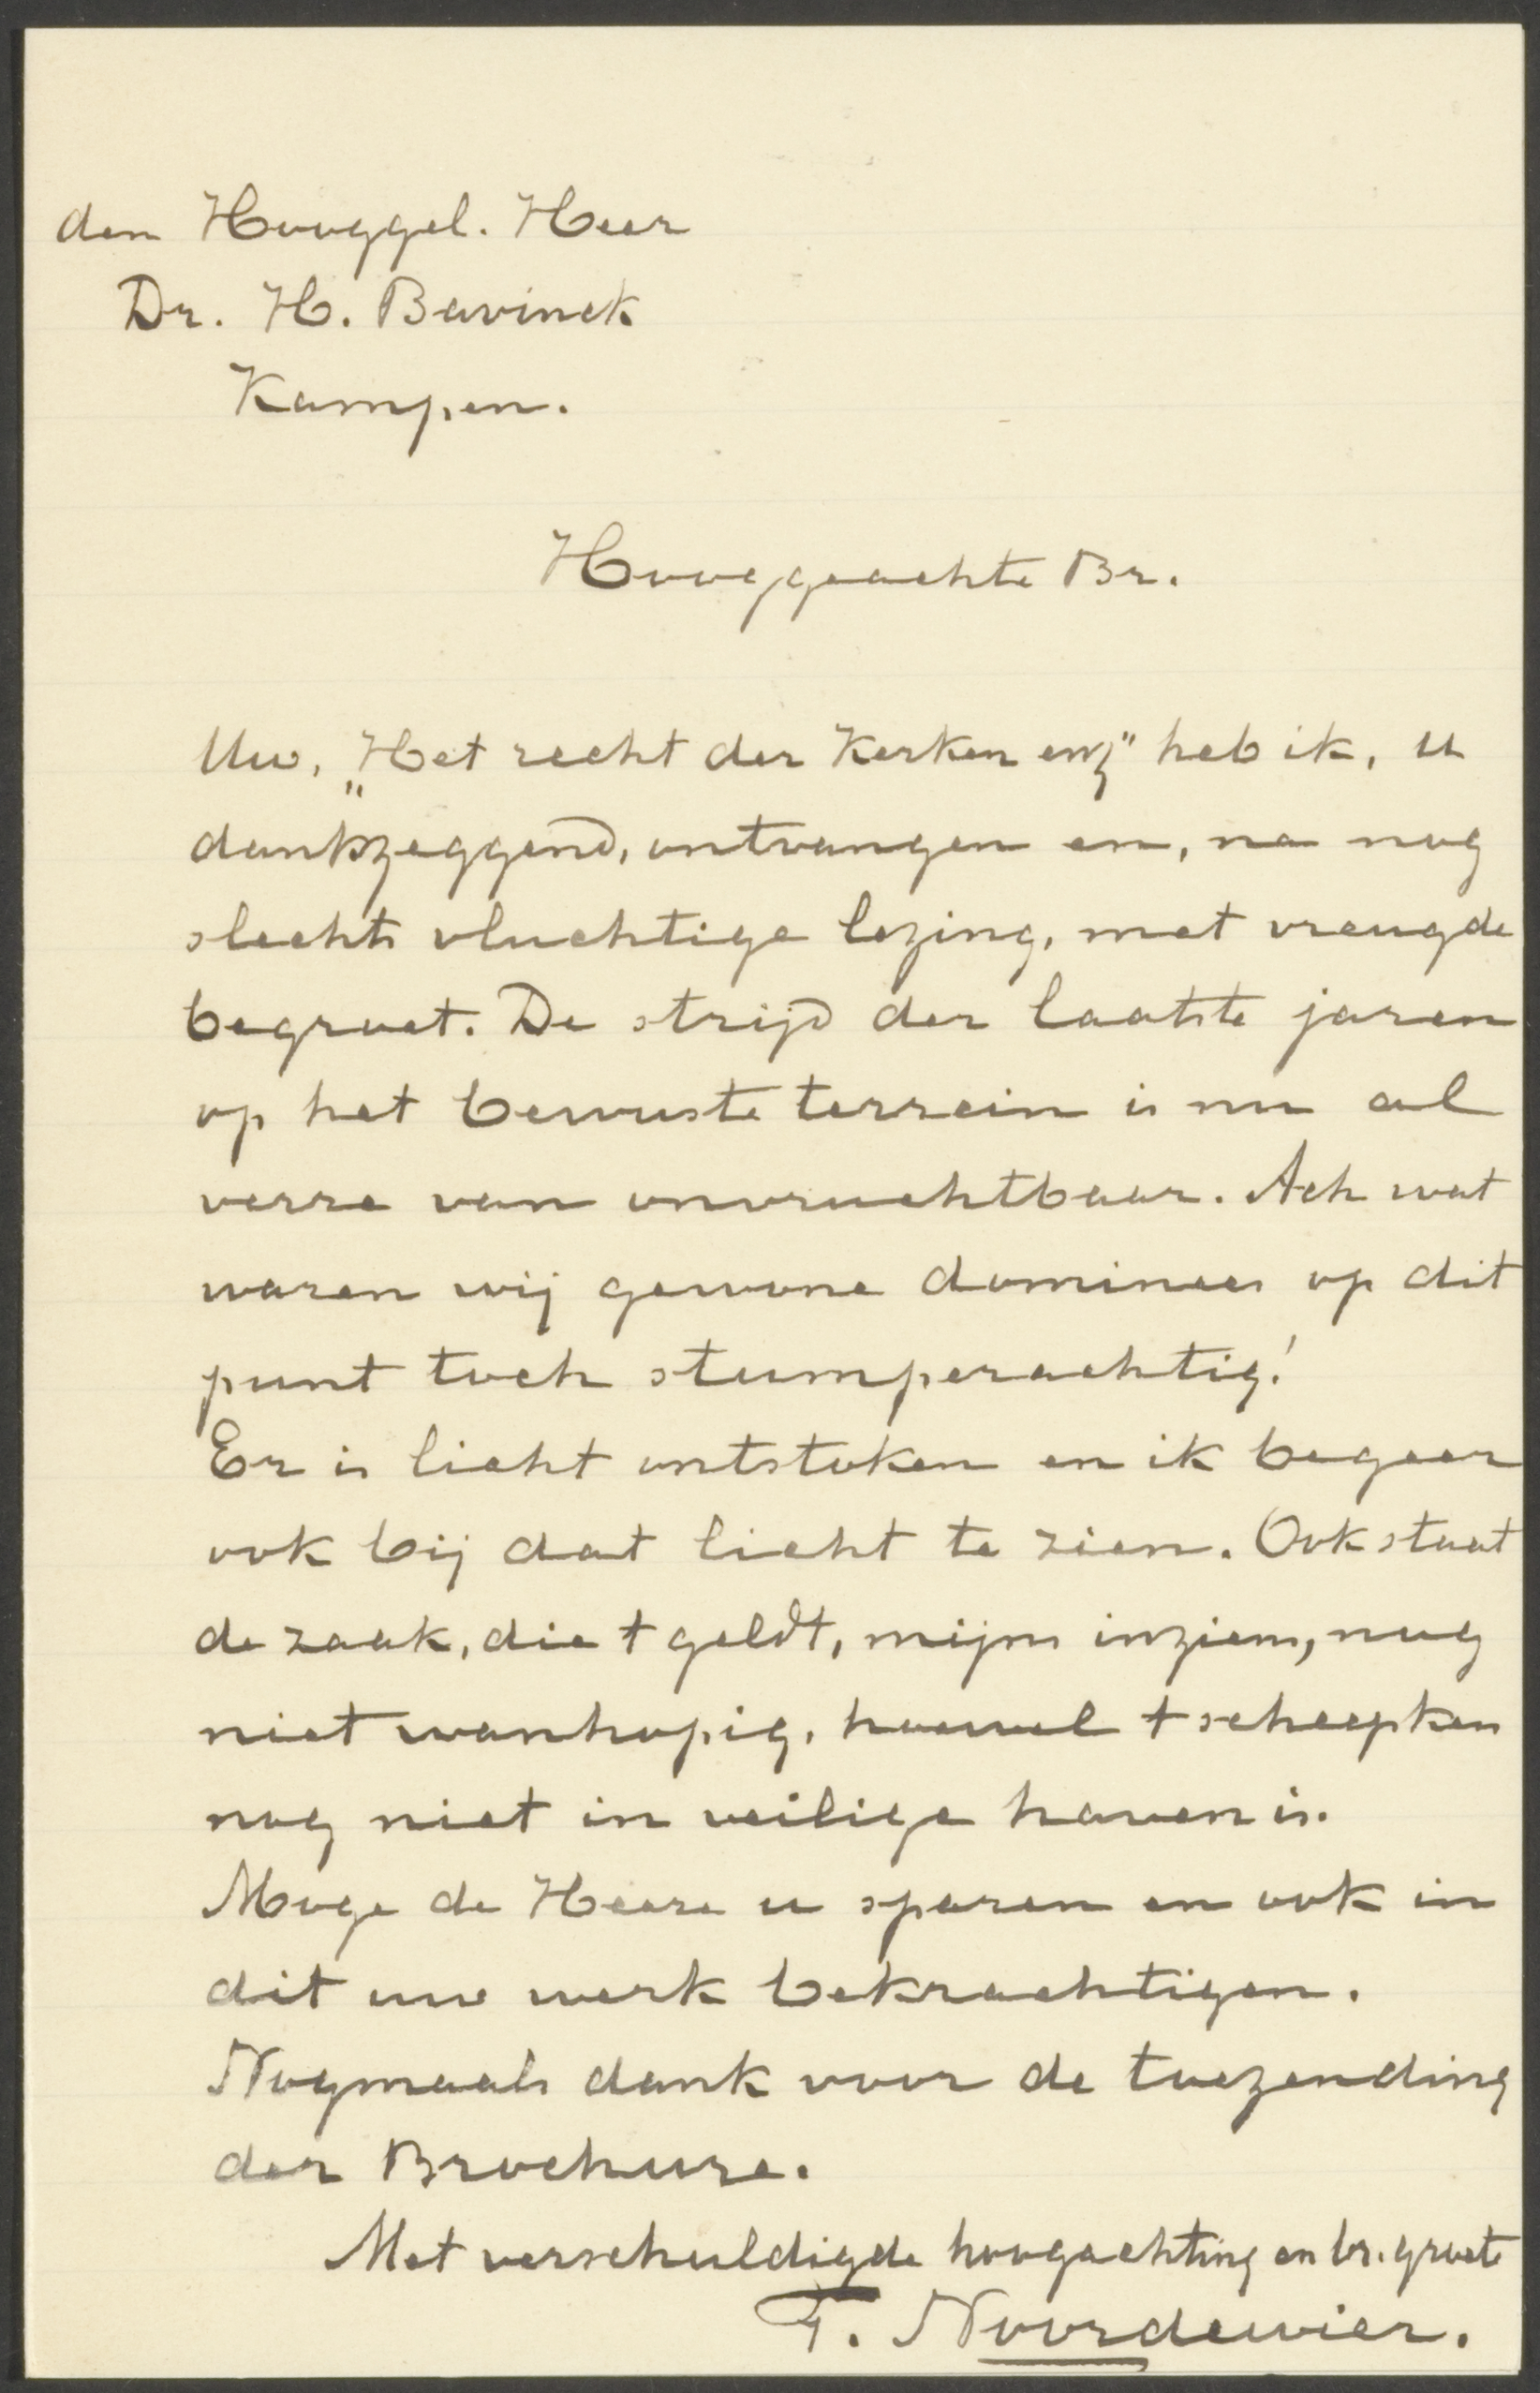 den Hooggel. Heer
Dr. H. Bavinck
Kampen.
Hooggeachte Br.
Uw, „Het recht der Kerken enz" heb ik, u
dankzeggend, ontvangen en, na nog
slechts vluchtige lezing, met vreugde
begroet. De strijd der laatste jaren
op het bewuste terrein is nu al
verre van onvruchtbaar. Ach wat
waren wij gewone dominees op dit
punt toch stumperachtig!
Er is licht ontstoken en ik begeer
ook bij dat licht te zien. Ook staat
de zaak, die t geldt, mijns inziens, nog
niet wanhopig, hoewel t scheepken
nog niet in veilige haven is.
Moge de Heere u sparen en ook in
dit uw werk bekrachtigen.
Nogmaals dank voor de toezending
der Brochure.
Met verschuldigde hoogachting en br. groete
T. Noordewier.